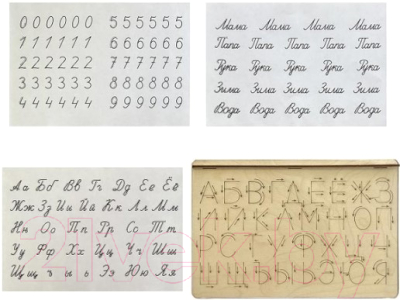 0 0 0 0 0 0 5 5 5 5 5 5
1 1 1 1 1 1 6 6 6 6 6 6
2 2 2 2 2 2 7 7 7 7 7 7
3 3 3 3 3 3 8 8 8 8 8 8
4 4 4 4 4 4 9 9 9 9 9 9
Мама Мама Мама Мама
Папа Папа Папа Папа Папа
Рука Рука Рука Рука Рука
Зима Зима Зима Зима
Вода Вода Вода Вода
Аа Бб Вв Гг Дд Ее Её
Жж Зз Ии Йй Кк Лл Мм
Нн Оо Пп Рр Сс Тт
Уу Фф Хх Цц Чч Шш
Щщ ъ ы ь Ээ Юю Яя
А Б В Г Д Е Ё Ж З
И Й К Л М Н О П
Р С Т У Ф Х Ц Ч
Ш Щ Ъ Ы Ь Э Ю Я